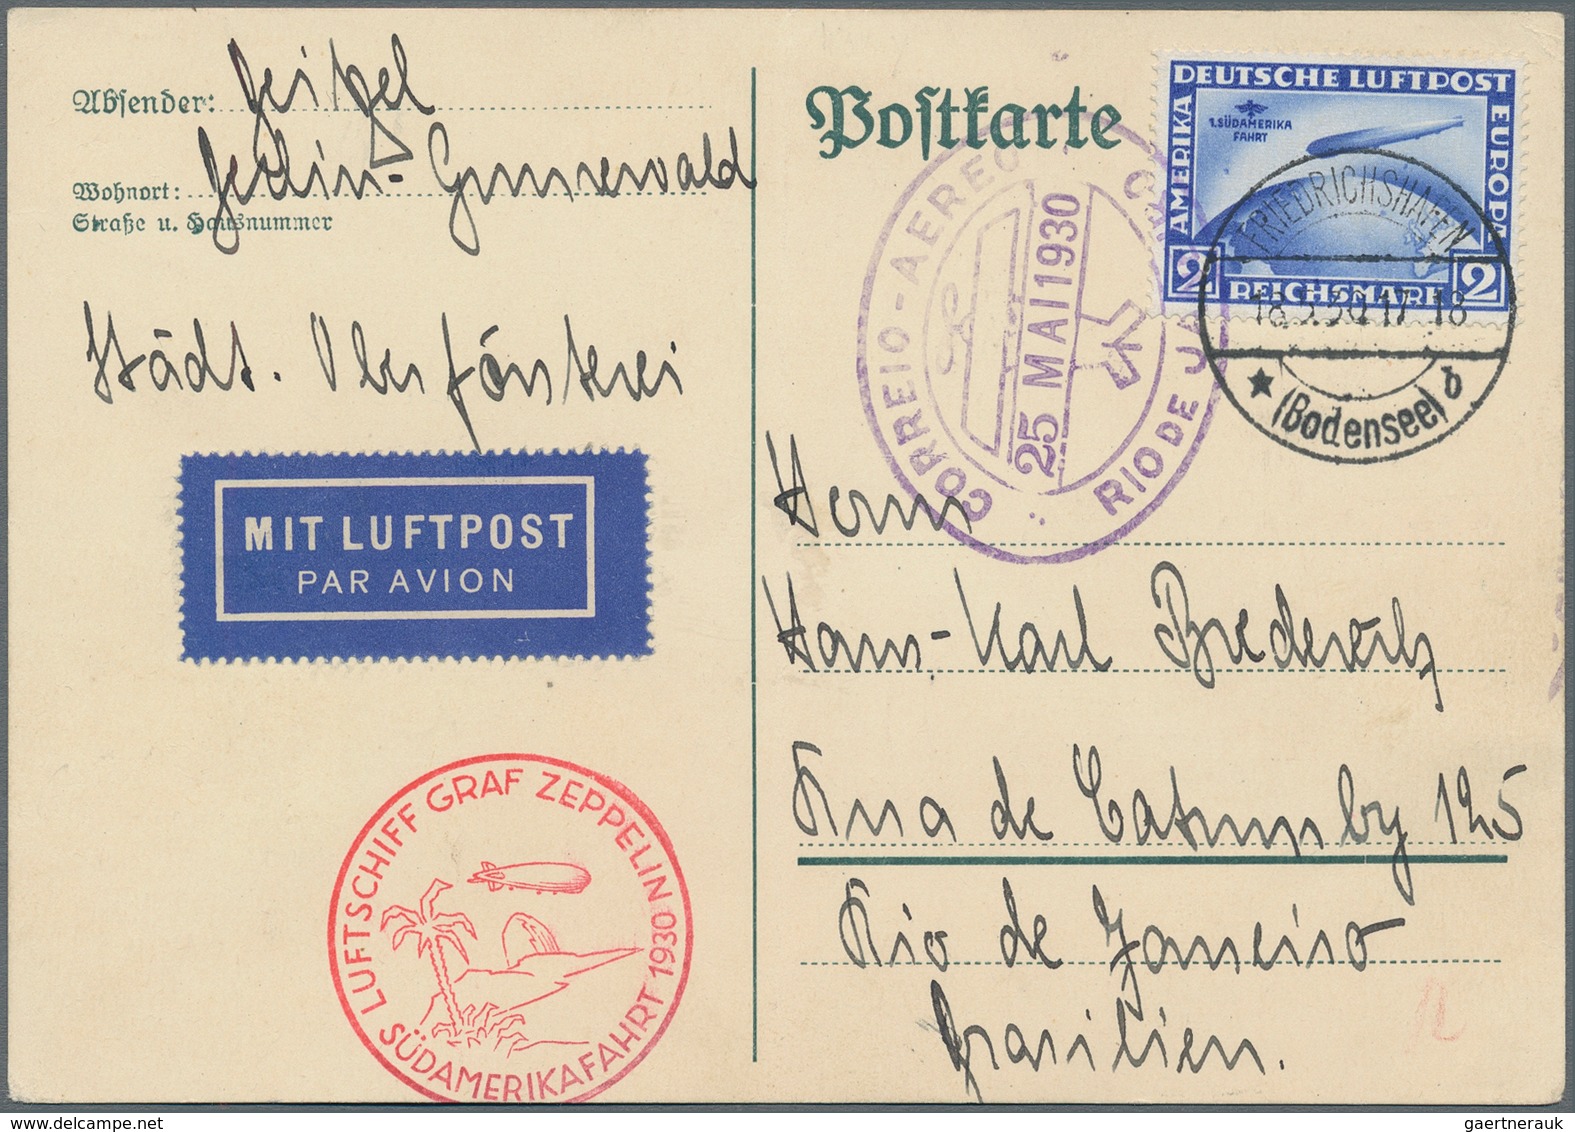 Absender: Geipel
Wohnort: Berlin-Grunewald
Straße u. Hausnummer
Städt. Oberförsterei
MIT LUFTPOST
PAR AVION
LUFTSCHIFF GRAF ZEPPELIN
SÜDAMERIKAFAHRT 1930
Postkarte
DEUTSCHE LUFTPOST
AMERIKA
EUROPA
1. SÜDAMERIKA
FAHRT
2 REICHSMARK 2
FRIEDRICHSHAFEN
18.5.30.17-18
(Bodensee) b
CORREIO-AEREO
25 MAI 1930
RIO DE JA
Herrn
Hans-Karl
Rua de Catumby 125
Rio de Janeiro
Brasilien.
gaertnerauk